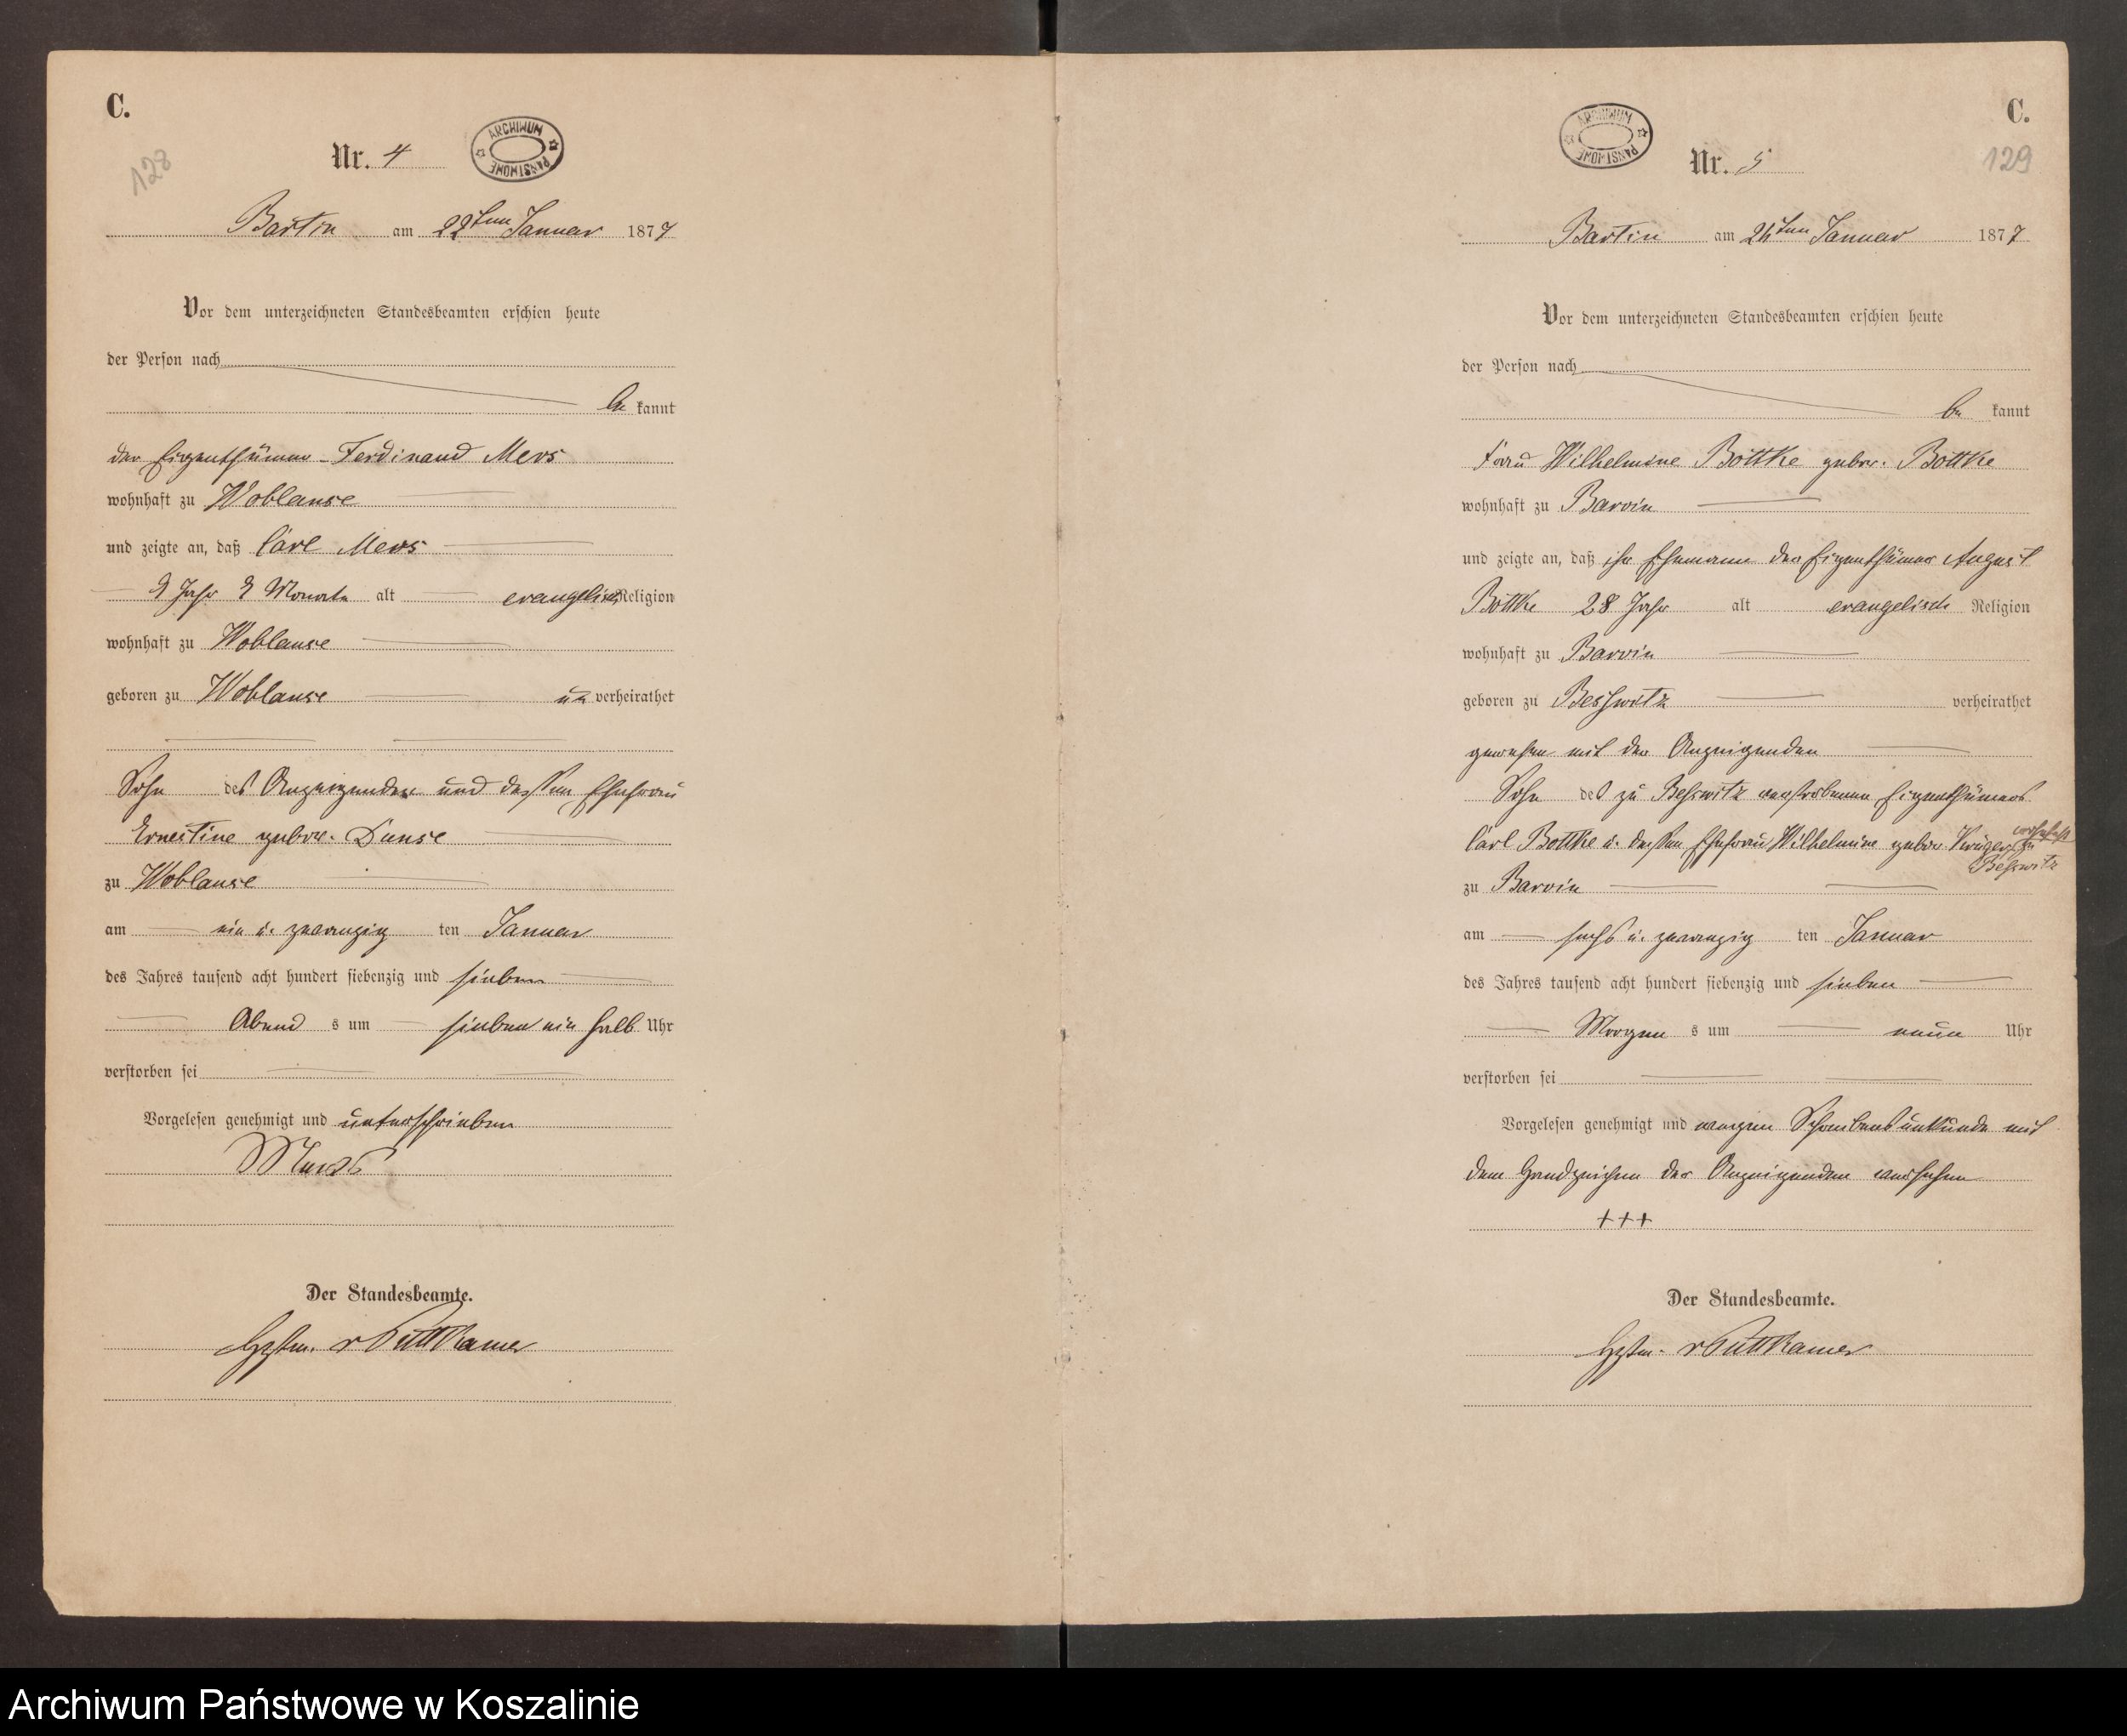 C.
128
Nr. 4
ARCHIWUM PAŃSTWOWE
Bartin am 22ten Januar 1877
Vor dem unterzeichneten Standesbeamten erschien heute
der Person nach
be kannt
der Eigenthümer Ferdinand Mers
wohnhaft zu Woblanse
und zeigte an, daß Carl Mers
Jahr Monate alt evangelisch Religion
wohnhaft zu Woblanse
geboren zu Woblanse un verheirathet
Sohn des Anzeigenden und dessen Ehefrau
Ernestine gebor. Dunse
zu Woblanse
am ein u. zwanzig ten Januar
des Jahres tausend acht hundert siebenzig und sieben
Abend s um sieben ein halb Uhr
verstorben sei
Vorgelesen genehmigt und unterschrieben
Der Standesbeamte.
v Puttkamer
C.
129
Nr. 5
ARCHIWUM PAŃSTWOWE
Bartin am 26ten Januar 1877
Vor dem unterzeichneten Standesbeamten erschien heute
der Person nach
be kannt
Frau Wilhelmine Bottke gebor. Bottke
wohnhaft zu Barvin
und zeigte an, daß ihr Ehemann der Eigenthümer August
Bottke 28 Jahr alt evangelisch Religion
wohnhaft zu Barvin
geboren zu Besswitz verheirathet
gewesen mit der Anzeigenden
Sohn des zu Besswitz verstorbenen Eigenthümers
Carl Bottke u. dessen Ehefrau Wilhelmine gebor. Krüger wohnhaft zu Besswitz
zu Barvin
am sechs u. zwanzig ten Januar
des Jahres tausend acht hundert siebenzig und sieben
Morgen s um neun Uhr
verstorben sei
Vorgelesen genehmigt und wegen Schreibensunkunde mit
dem Handzeichen der Anzeigenden versehen
+++
Der Standesbeamte.
v Puttkamer
Archiwum Państwowe w Koszalinie